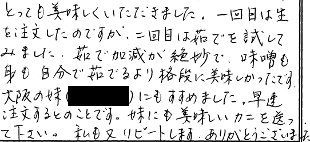 とっても美味しくいただきました。一回目は生
を注文したのですが、二回目は茹でを試して
みました。茹で加減が絶妙で、味噌も
身も自分で茹でるより格段に美味しかったです
大阪の妹()にもすすめました。早速
注文するとのことです。妹にも美味しいカニを送っ
て下さい。私も又リピートします。ありがとうございました